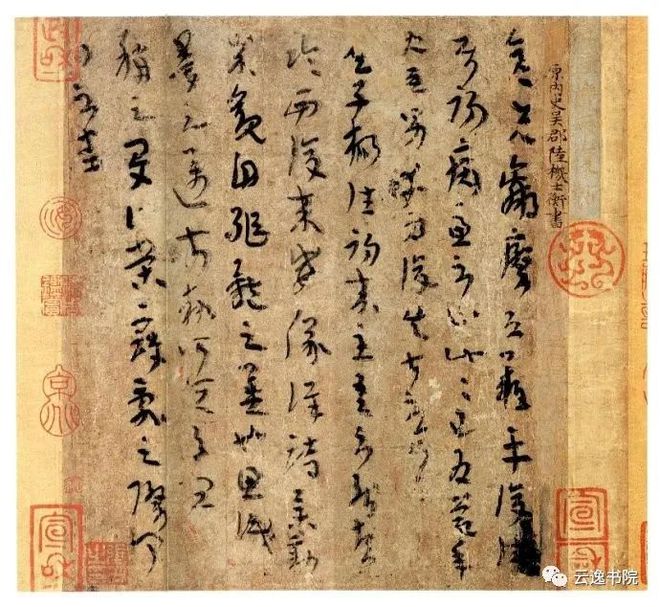 晉內史吳郡陸機士衡書
彥先羸瘵恐難平復往屬
初病慮不止此此已為慶承
使唯男幸為復失前憂耳
吳子楊往初來主吾不能盡
臨西復來威儀詳跱舉動
成觀自軀體之美也思識
量之邁前執所恒有宜
稱之夏伯榮寇亂之際聞
問不悉
宣和
云逸书院